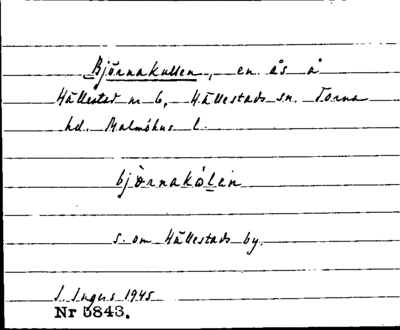 Björnakullen, en ås å
Hällestad nr 6, Hällestads sn. Torna
hd. Malmöhus l.
björnakúlen
s. om Hällestads by.
I. Ingers 1945
Nr 5843.